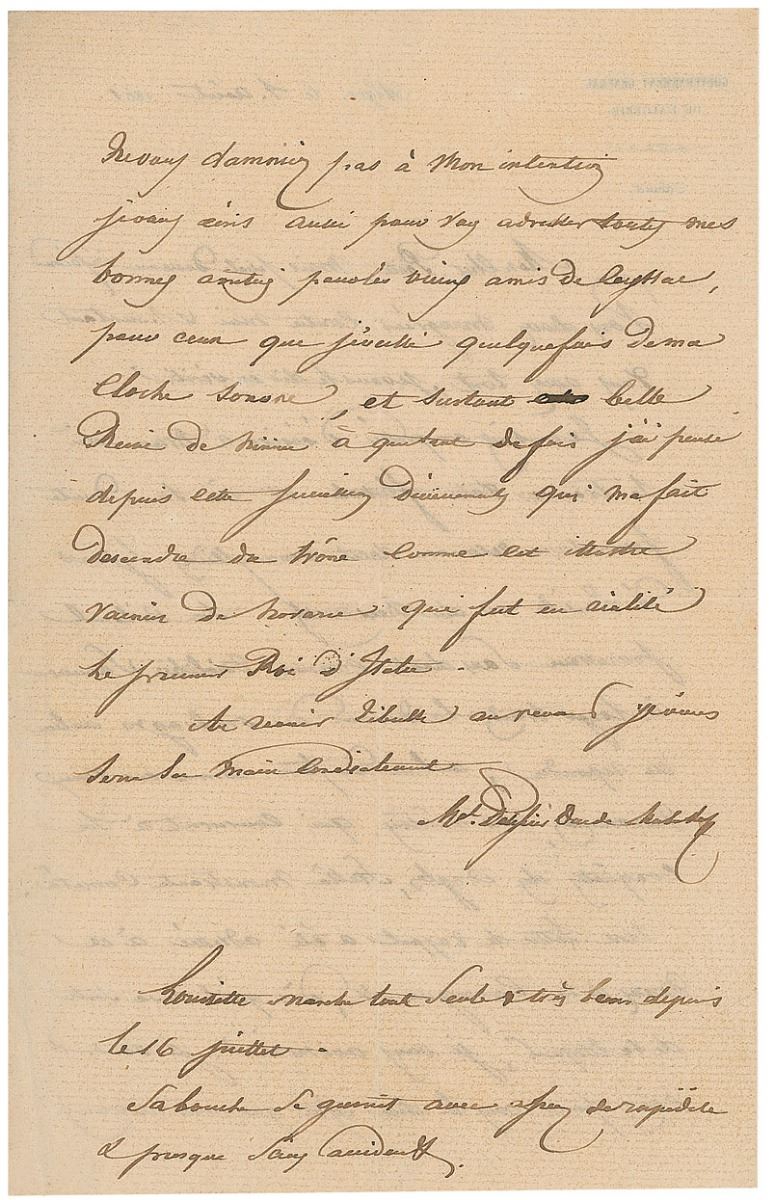 Ne vous
pas à mon intention
je vous écris aussi pour vous adresser toutes mes
bonnes amitiés pour les vieux amis de Leyssac,
pour ceux que j'éveille quelquefois de ma
cloche sonore, et surtout belle
Reine de à quitant de fois j'ai pensé
depuis cette d'évènements qui m'a fait
descendre du trône comme cet illustre
vaincu de Novare qui fut en réalité
le premier Roi d'Italie.
au revoir je vous
serre la main cordialement
Mel.
Louisette marche toute seule & très bien depuis
le 16 juillet.
Sa bouche se garnit avec assez de rapidité
& presque sans accident.